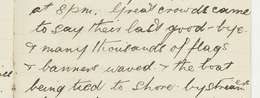 at 8 pm. Great crowds came
to say their last good-bye
& many thousands of flags
& banners waved & the boat
being tied to shore by stream